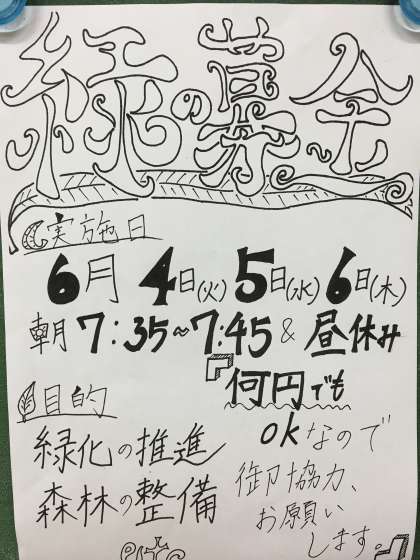 緑の募金
実施日
6月 4日(火) 5日(水) 6日(木)
朝 7:35~7:45 & 昼休み
目的
緑化の推進
森林の整備
何円でも
okなので
御協力、
お願い
します。